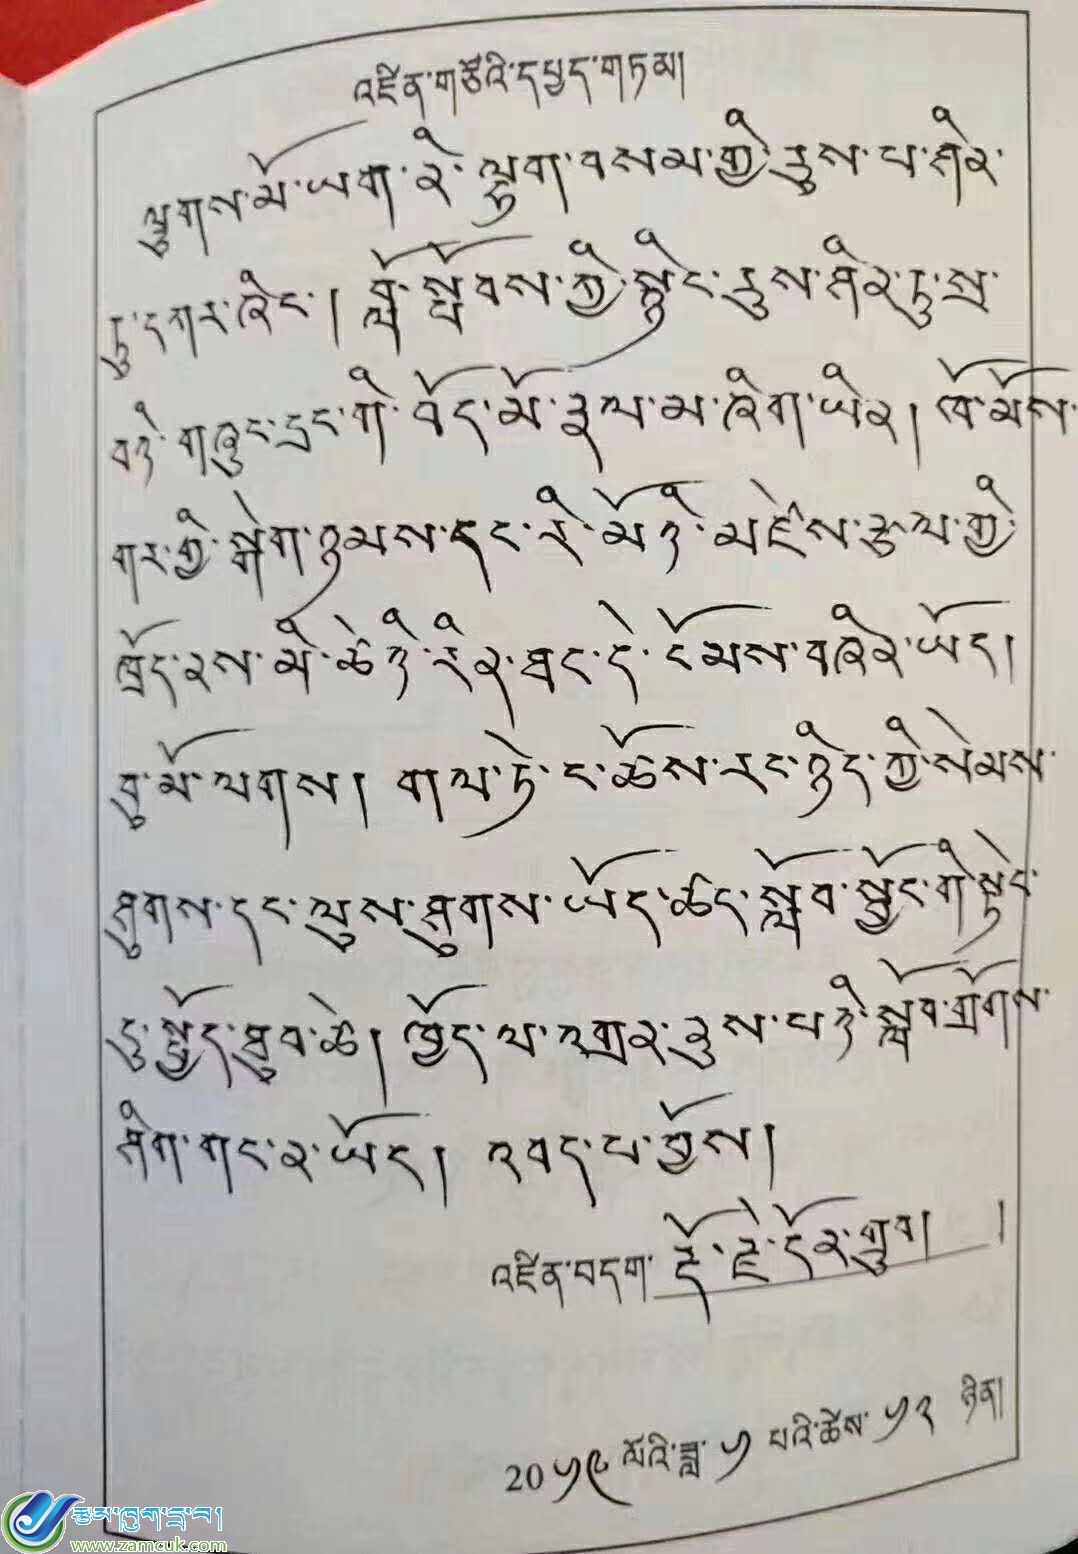 འཛིན་གཙོའི་དཔྱད་གཏམ།
ལྷུགས་མོ་ཡག་རེ་ལྷག་བསམ་གྱི་ནུས་པ་ཤེར་
ཏུ་དཀར་ཞིང་། བློ་སྟོབས་ཀྱི་སྟེང་ནུས་ཤེར་ཏུ་སྲ་
བའི་གཞུང་དྲང་གི་བོད་མོ་རྒྱལ་མ་ཞིག་ཡིན། ཁོ་མོས་
གར་གྱི་སྒེག་ཉམས་དང་རི་མོའི་མཛེས་རྩལ་གྱི་
ཁྲོད་ནས་མི་ཚེའི་རིན་ཐང་དེ་ངོམས་བཞིན་ཡོད།
བུ་མོ་ལགས། གལ་ཏེ་ང་ཚོས་རང་ཉིད་ཀྱི་སེམས་
ཤུགས་དང་ལུས་ཤུགས་ཡོད་ཚད་སློབ་སྦྱོང་གི་སྟེང་
དུ་སྤྱོད་ཐུབ་ཚེ། ཁྱོད་ལ་འགྲན་ནུས་པའི་སློབ་གྲོགས་
ཤིག་གང་ན་ཡོད། འབད་པ་གྱིས།
འཛིན་བདག་རྡོ་རྗེ་དོན་གྲུབ།
20༡༩ལོའི་ཟླ་༡པའི་ཚེས་༡༢ཉིན།
རྩམ་ཁུག་དྲ་བ།
www.zamcuk.com